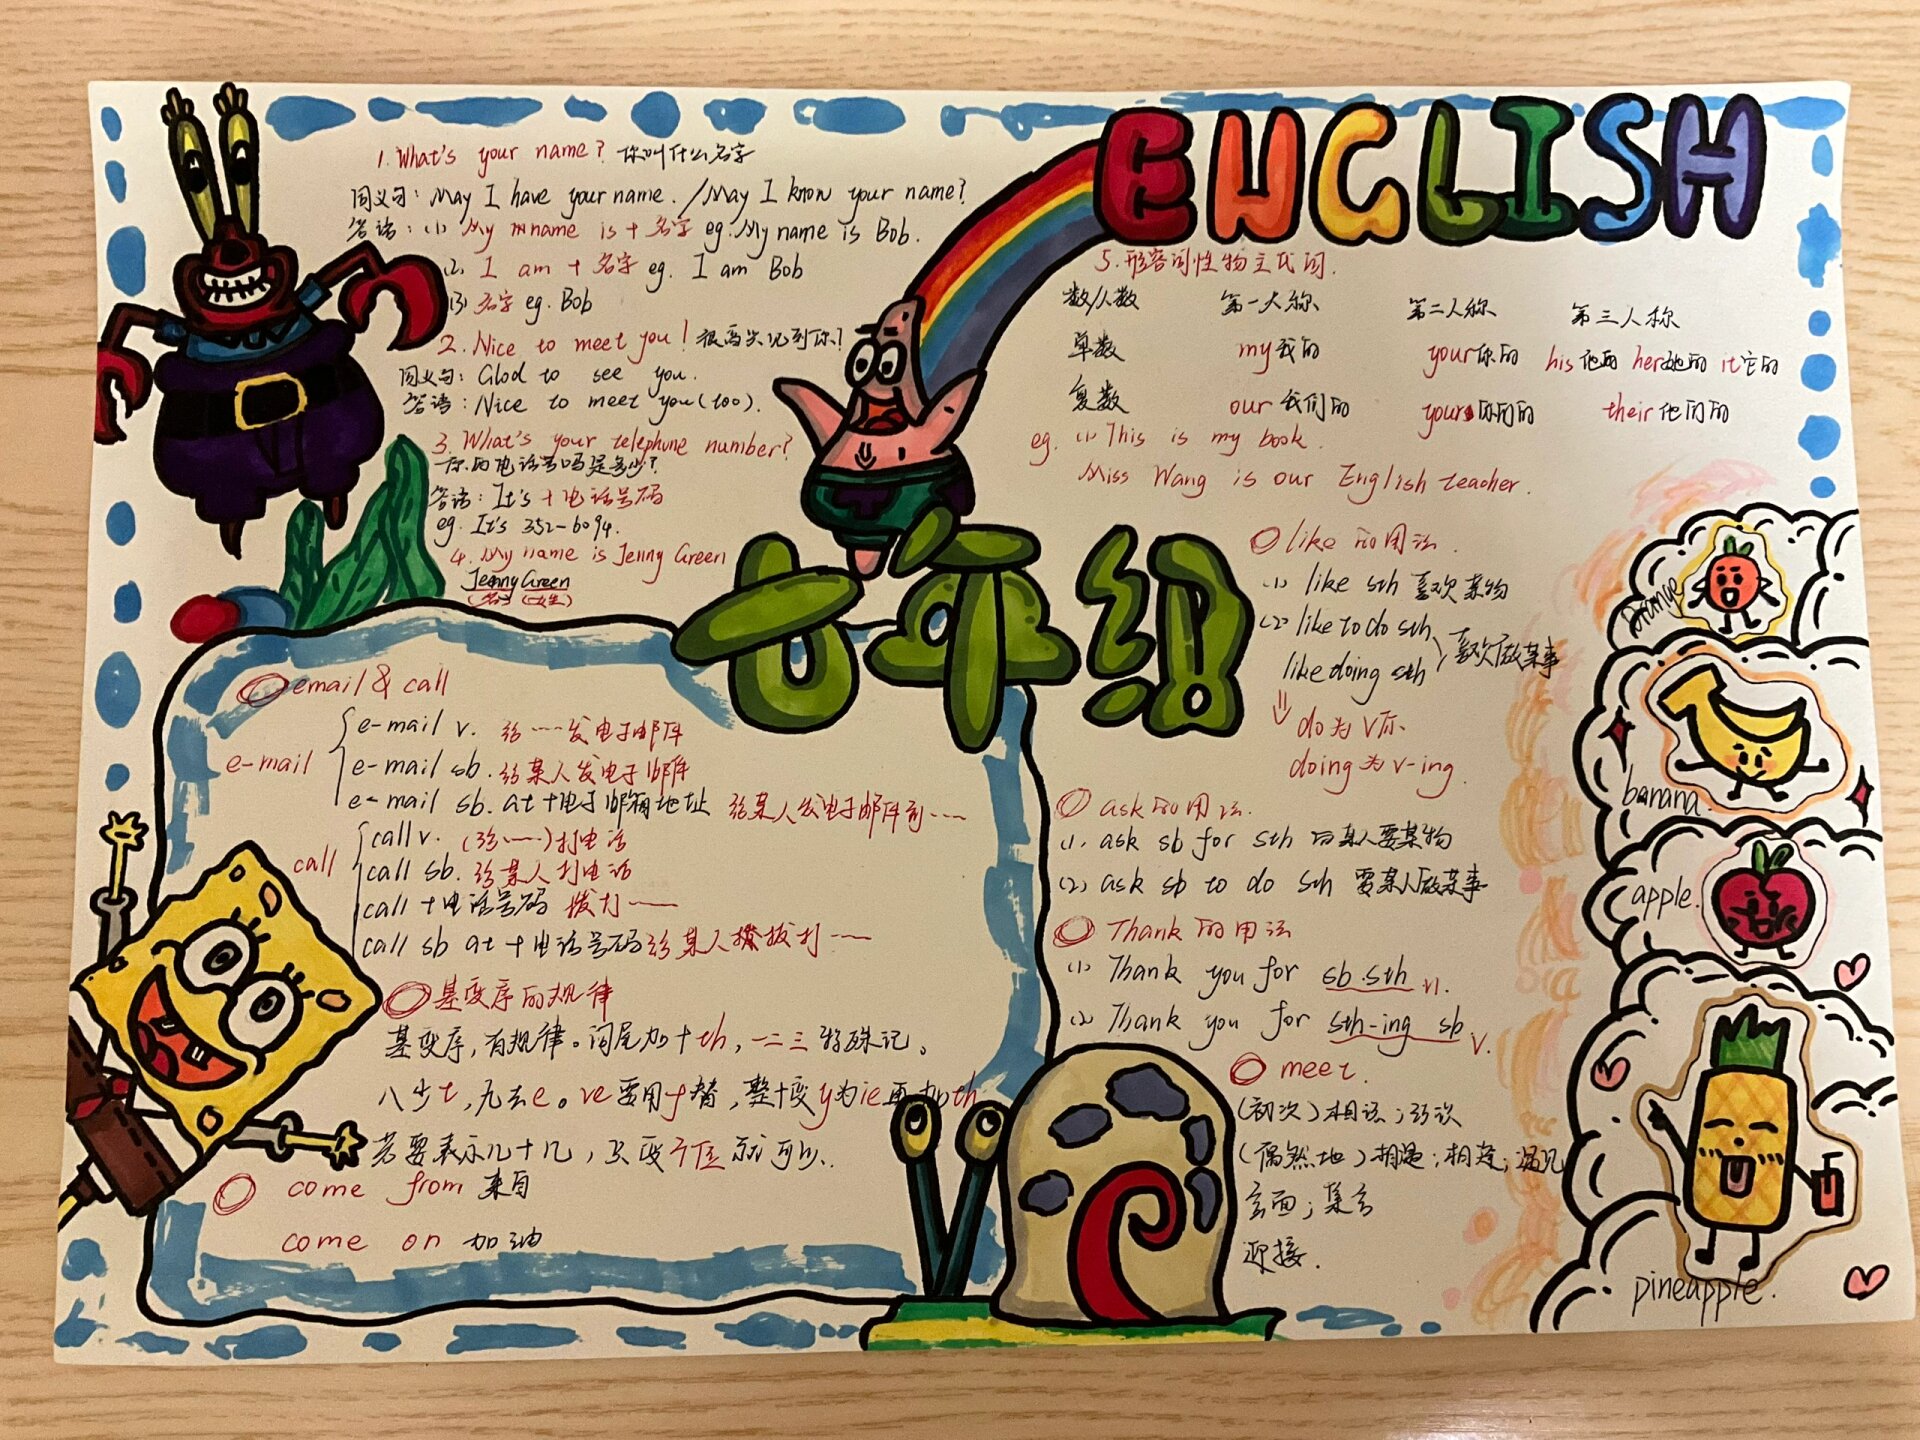 ENGLISH
七年级
1. What's your name? 你叫什么名字
同义句: May I have your name. / May I know your name?
答语: (1) My name is + 名字 eg. My name is Bob.
(2) I am + 名字 eg. I am Bob
(3) 名字 eg. Bob
2. Nice to meet you! 很高兴见到你?
同义句: Glod to see you.
答语: Nice to meet you (too).
3. What's your telephone number?
你的电话号码是多少?
答语: It's + 电话号码
eg. It's 352-6094.
4. My name is Jenny Green
Jenny Green
5. 形容词性物主代词.
数/人数 第一人称 第二人称 第三人称
单数 my我的 your你的 his他的 her她的 it它的
复数 our我们的 your你们的 their他们的
eg. (1) This is my book.
Miss Wang is our English teacher.
like的用法.
(1) like sth 喜欢某物
(2) like to do sth
like doing sth 喜欢做某事
do为v原
doing为v-ing.
ask的用法.
(1). ask sb for sth 向某人要某物
(2) ask sb to do sth 要某人做某事
Thank的用法
(1) Thank you for sb.sth n.
(2) Thank you for sth-ing sb v.
meet.
(初次)相识;认识
(偶然地)相遇;相逢;遇见
会面;集合
迎接.
email & call
e-mail
e-mail v. 给······发电子邮件
e-mail sb. 给某人发电子邮件
e-mail sb. at + 电子邮箱地址 给某人发电子邮件到······
call
call v. (给······)打电话
call sb. 给某人打电话
call + 电话号码 拨打······
call sb at + 电话号码 给某人拨打······
基变序的规律
基变序,有规律。词尾加+th,一二三特殊记。
八少t,九去e。ve要用f替,整十变y为ie再加th
若要表示几十几,只变个位就可以.
come from 来自
come on 加油
orange
banana.
apple.
pineapple.